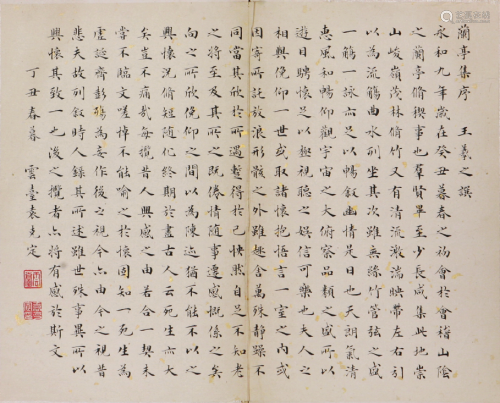 蘭亭集序 王羲之譔
永和九年歲在癸丑暮春之初會於會稽山陰
之蘭亭脩稧事也群賢畢至少長咸集此地崇
山峻嶺茂林脩竹又有清流激湍映帶左右引
以為流觴曲水列坐其次雖無絲竹管弦之盛
一觴一詠亦足以暢敘幽情是日也天朗氣清
惠風和暢仰觀宇宙之大俯察品類之盛所以
遊目騁懷足以極視聽之娛信可樂也夫人之
相與俛仰一世或取諸懷抱悟言一室之內或
因寄所託放浪形骸之外雖趣舍萬殊靜躁不
同當其欣於所遇暫得於己快然自足不知老
之將至及其所之既倦情隨事遷感慨係之矣
向之所欣俛仰之間以為陳迹猶不能不以之
興懷況脩短隨化終期於盡古人云死生亦大
矣豈不痛哉每攬昔人興感之由若合一契未
嘗不臨文嗟悼不能喻之於懷固知一死生為
虛誕齊彭殤為妄作後之視今亦由今之視昔
悲夫故列敘時人錄其所述雖世殊事異所以
興懷其致一也後之攬者亦將有感於斯文
丁丑春暮 雲臺袁克定